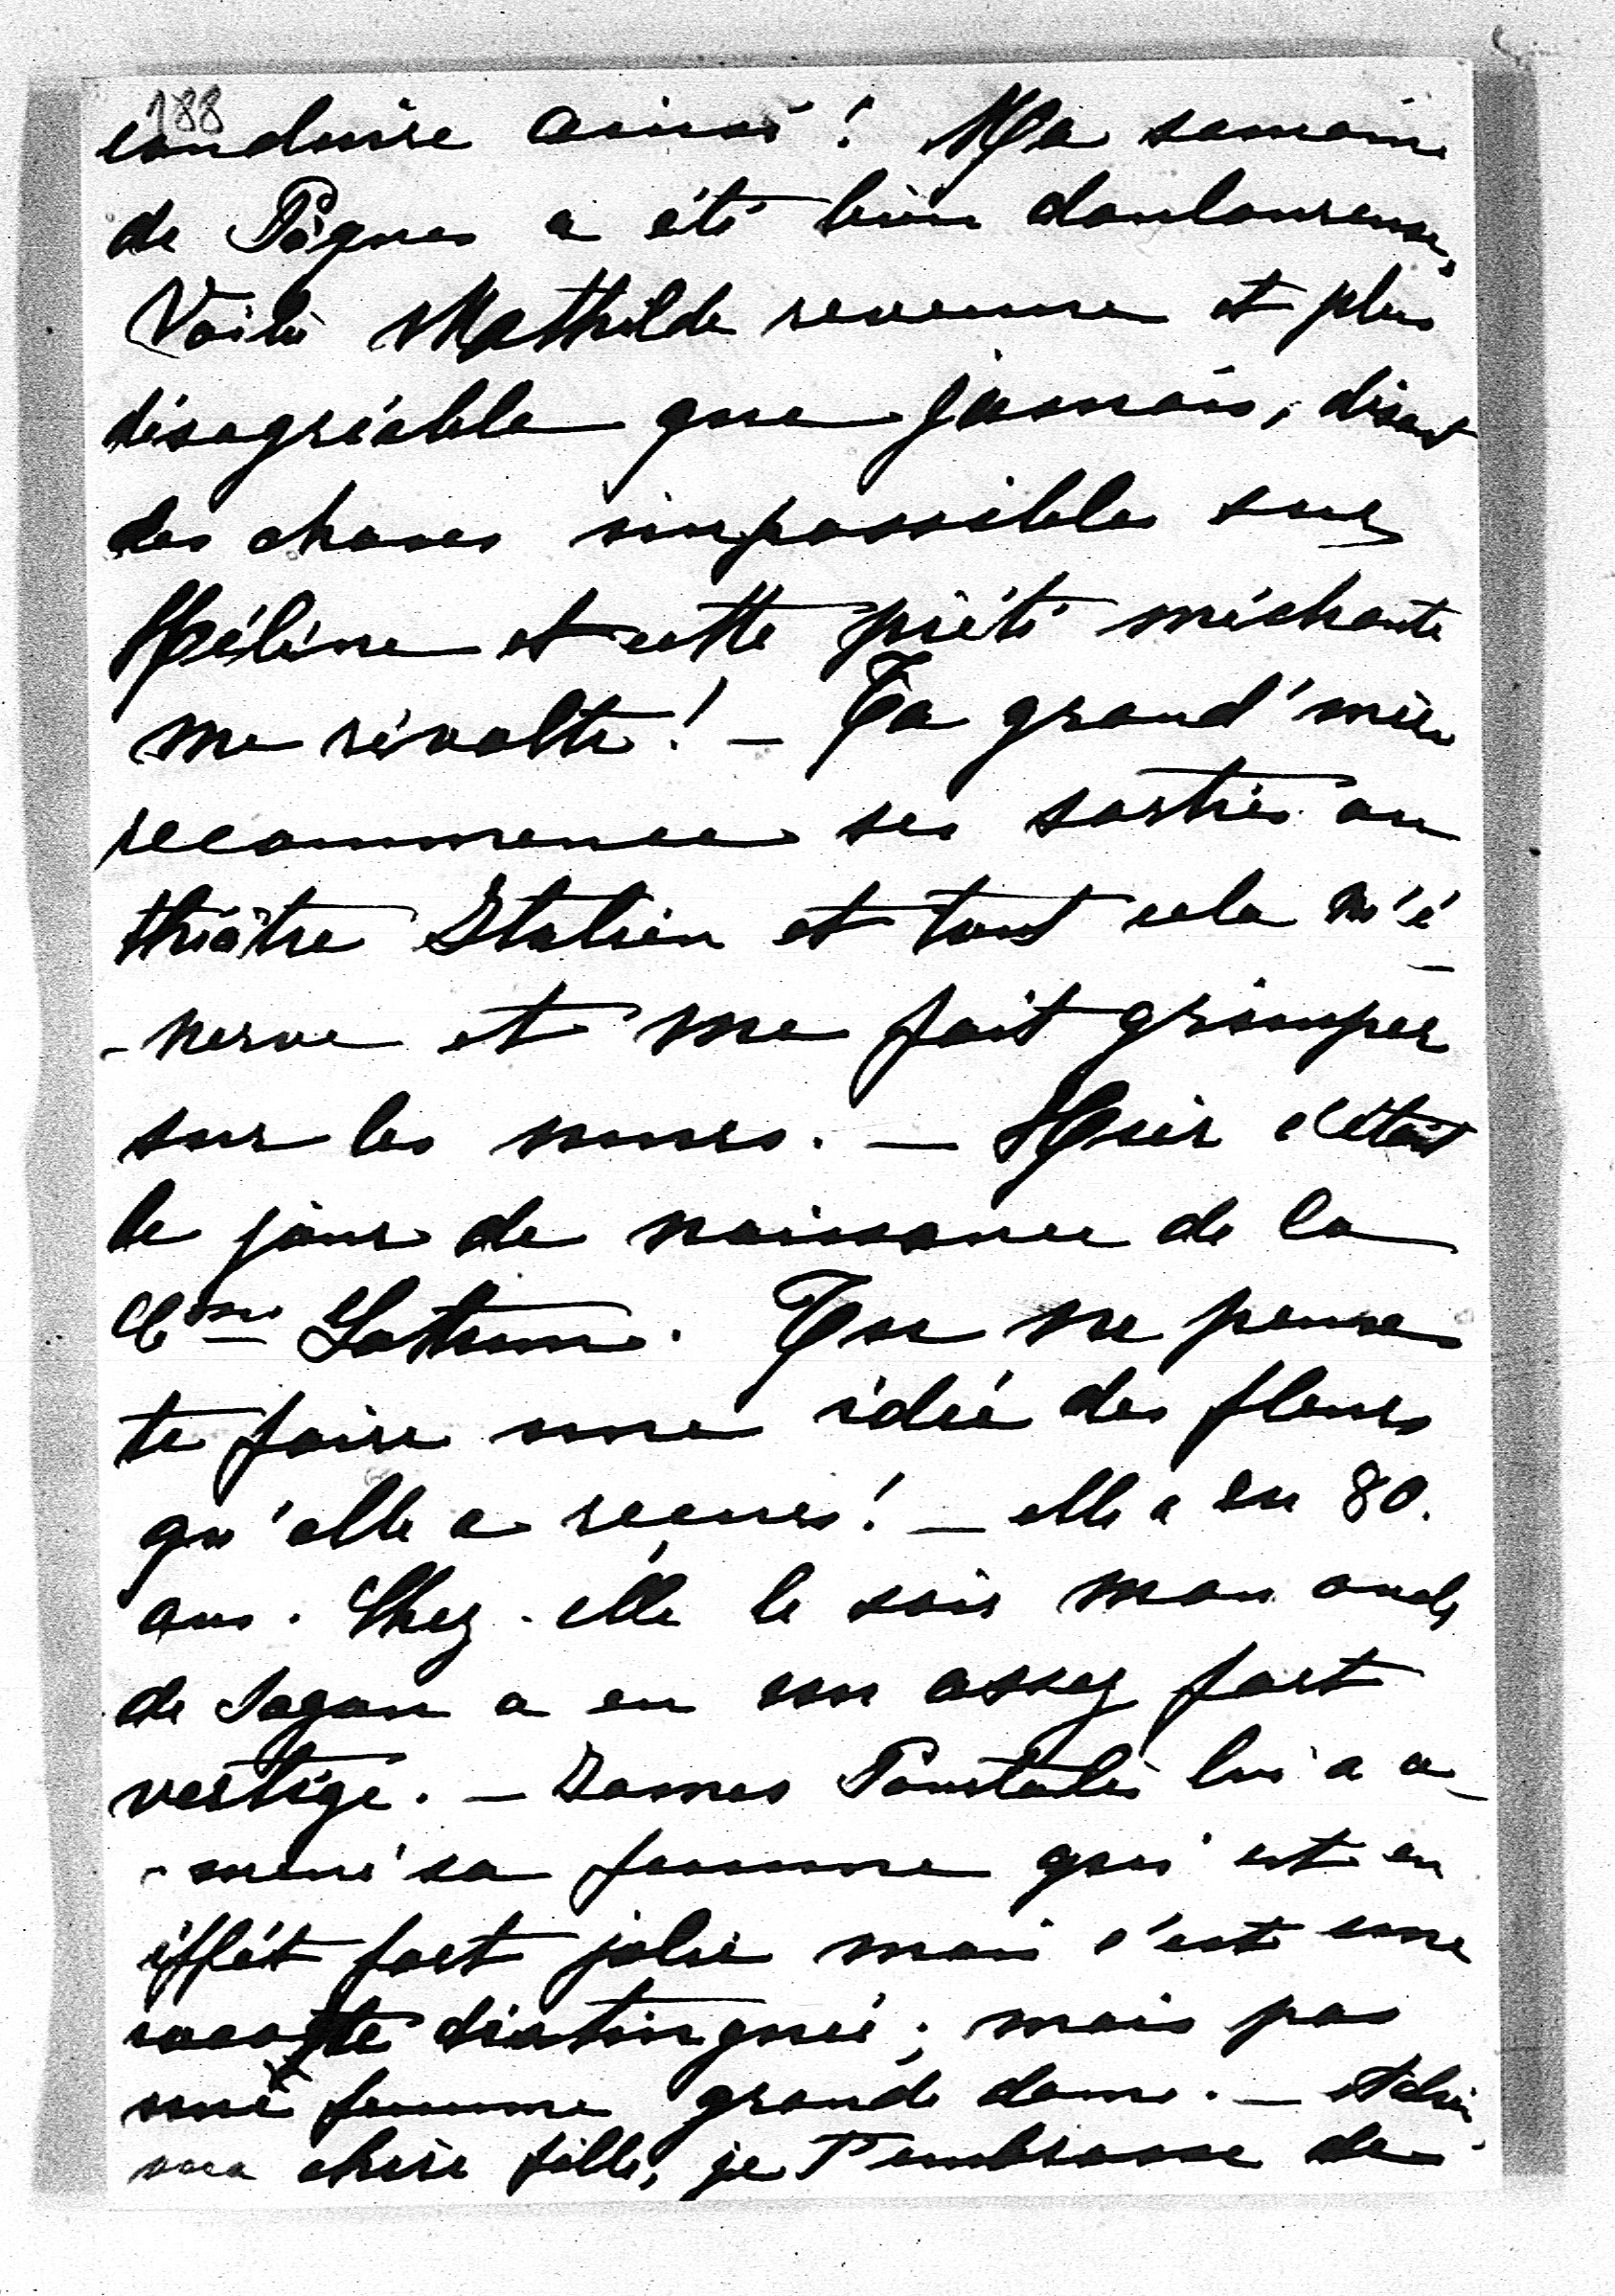 188
conduire ainsi! Ma semaine
de Pâques a été bien douloureuse,
Voilà Mathilde revenue et plus
désagréable que jamais, disant
des choses impossibles sur
Hélène et cette piété méchante
me révolte! — Ta grand'mère
recommence ses sorties au
théâtre Italien et tout cela m'é-
-nerve et me fait grimper
sur les murs. — Hier c'était
le jour de naissance de la
Csse. Tu ne peux
te faire une idée des fleurs
qu'elle a reçues! — elle a eu 80.
ans. Chez-elle le soir mon oncle
de Sagan a eu un assez fort
vertige. — James Pourtalès lui a a-
-mené sa femme qui est en
effet fort jolie mais c'est une
cocotte distinguée; mais pas
une femme grande dame. — Adieu
ma chère fille, je t'embrasse de